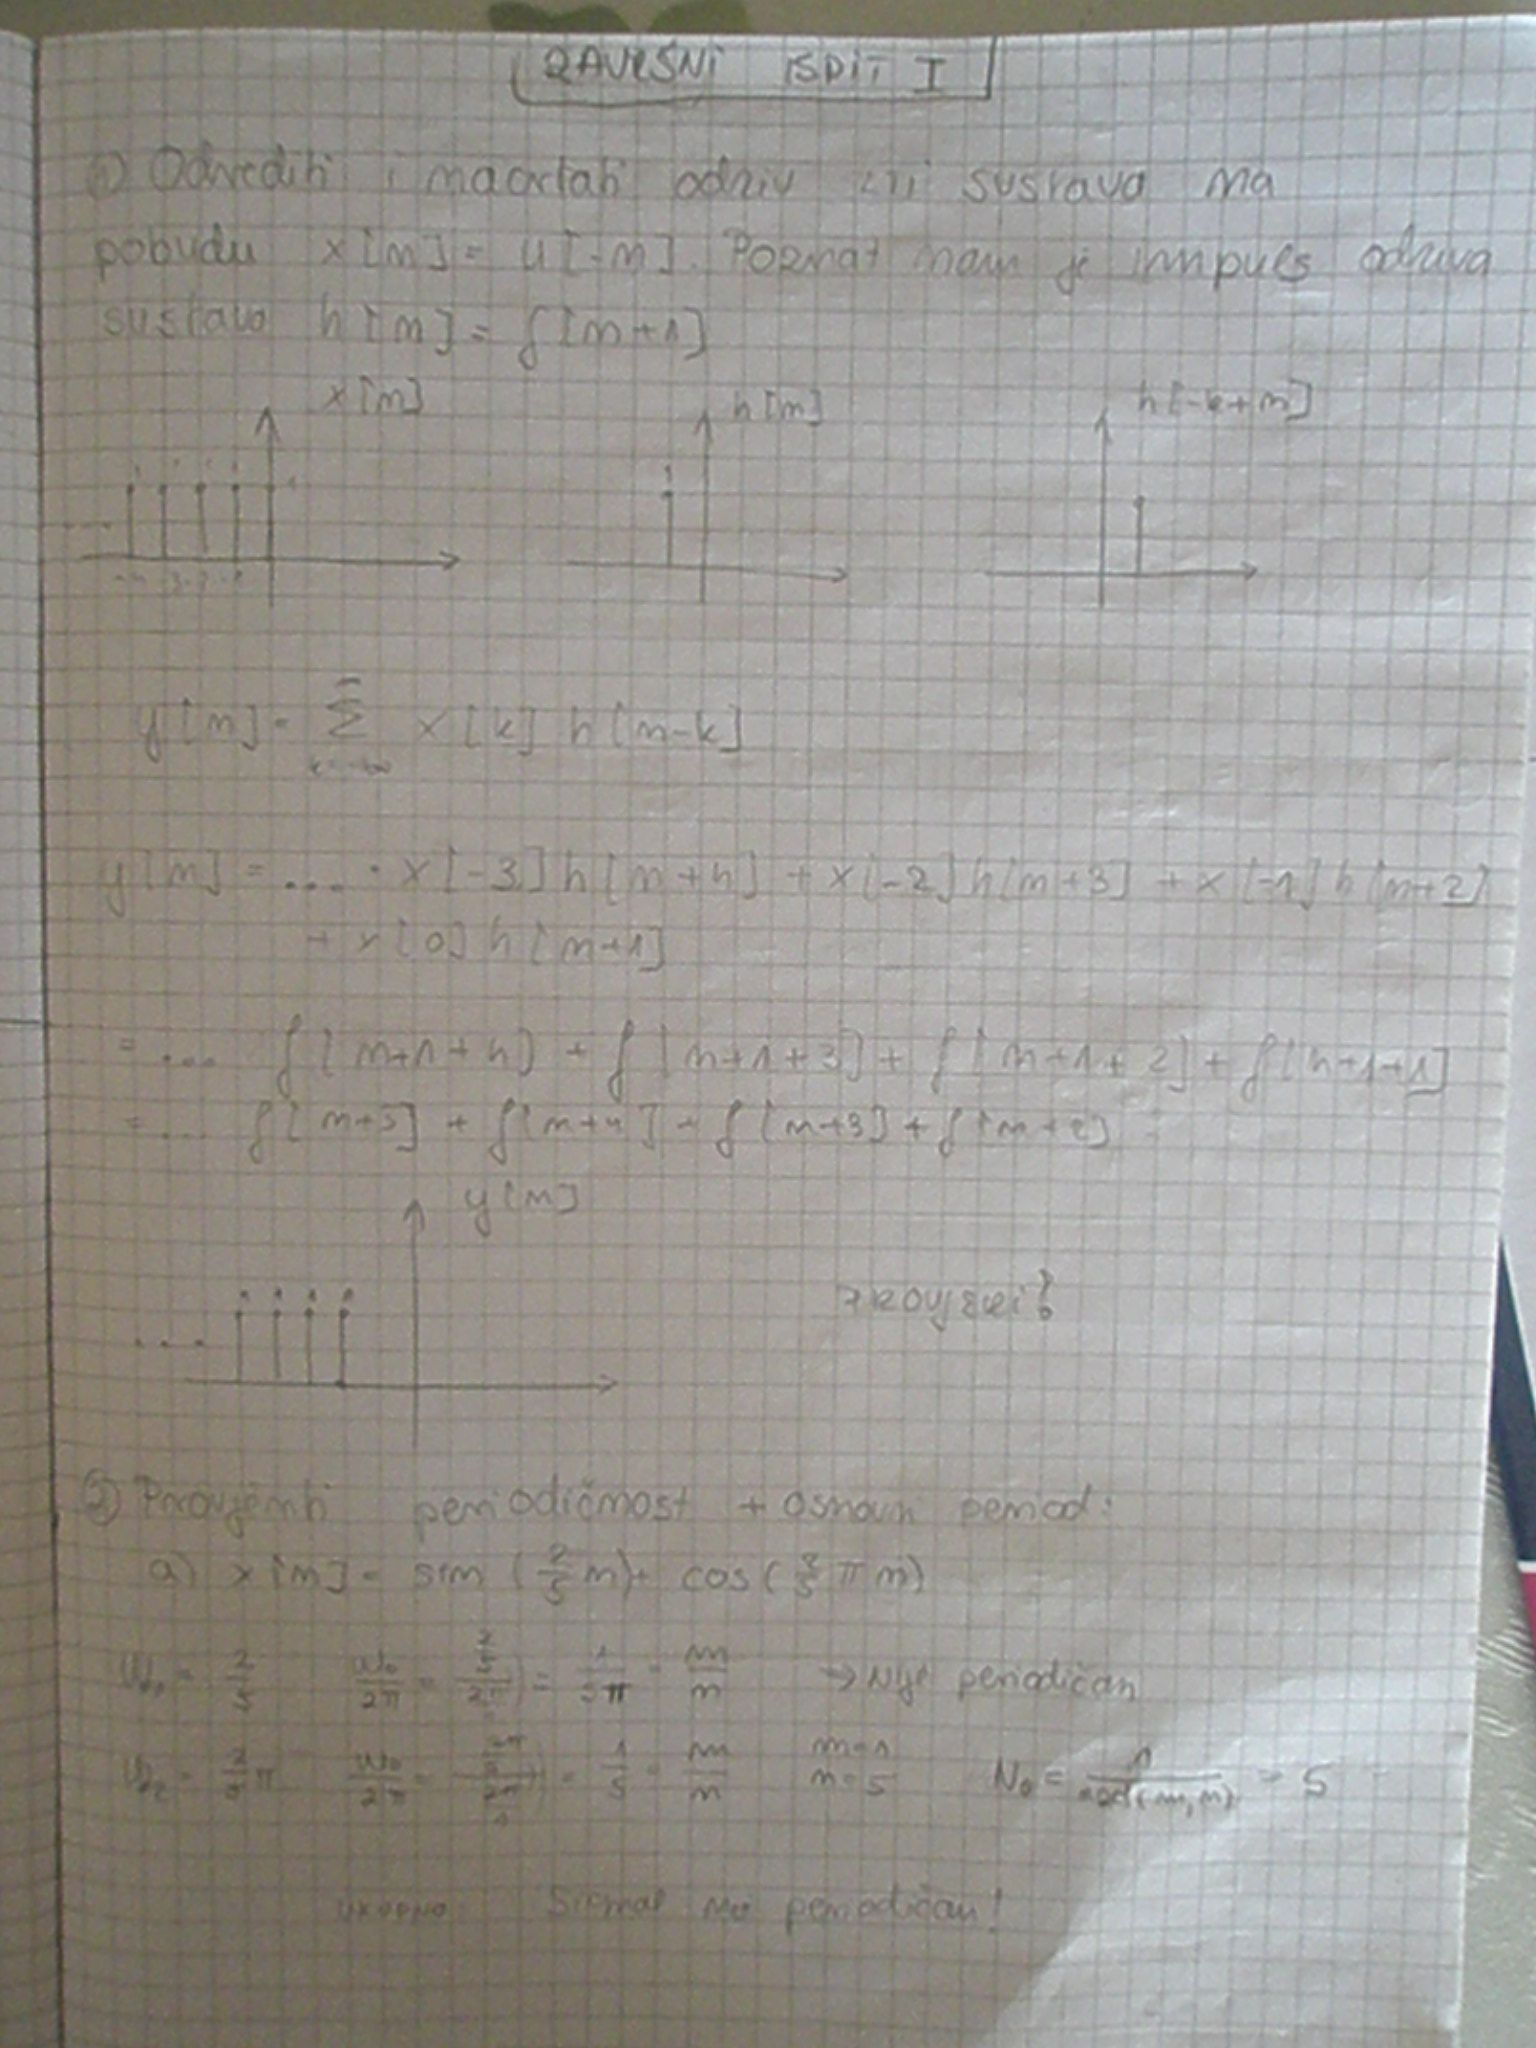 ZAVRŠNI ISPIT I
1) Odrediti i nacrtati odziv LTI sustava na
pobudu x[n] = u[-n]. Poznat nam je impuls odziva
sustava h[n] = δ[n+1]
x[n] h[n] h[-k+n]
y[n] = Σ x[k] h[n-k]
y[n] = .... + x[-3] h[n+4] + x[-2] h[n+3] + x[-1] h[n+2]
+ x[0] h[n+1]
= ... δ[n+1+4] + δ[n+1+3] + δ[n+1+2] + δ[n+1+1]
= ... δ[n+5] + δ[n+4] + δ[n+3] + δ[n+2]
y[n]
PROVJERI?
2) Provjeriti periodičnost + osnovni period:
a) x[n] = sin(2/5 n) + cos(2/5 π n)
ω01 = 2/5 ω0/2π = (2/5)/2π = 1/5π = m/n → Nije periodičan
ω02 = 2/5 π ω0/2π = = 1/5 = m/n m=1 n=5 N0 = n/gcd(m,n) = 5
UKUPNO Signal nije periodičan!